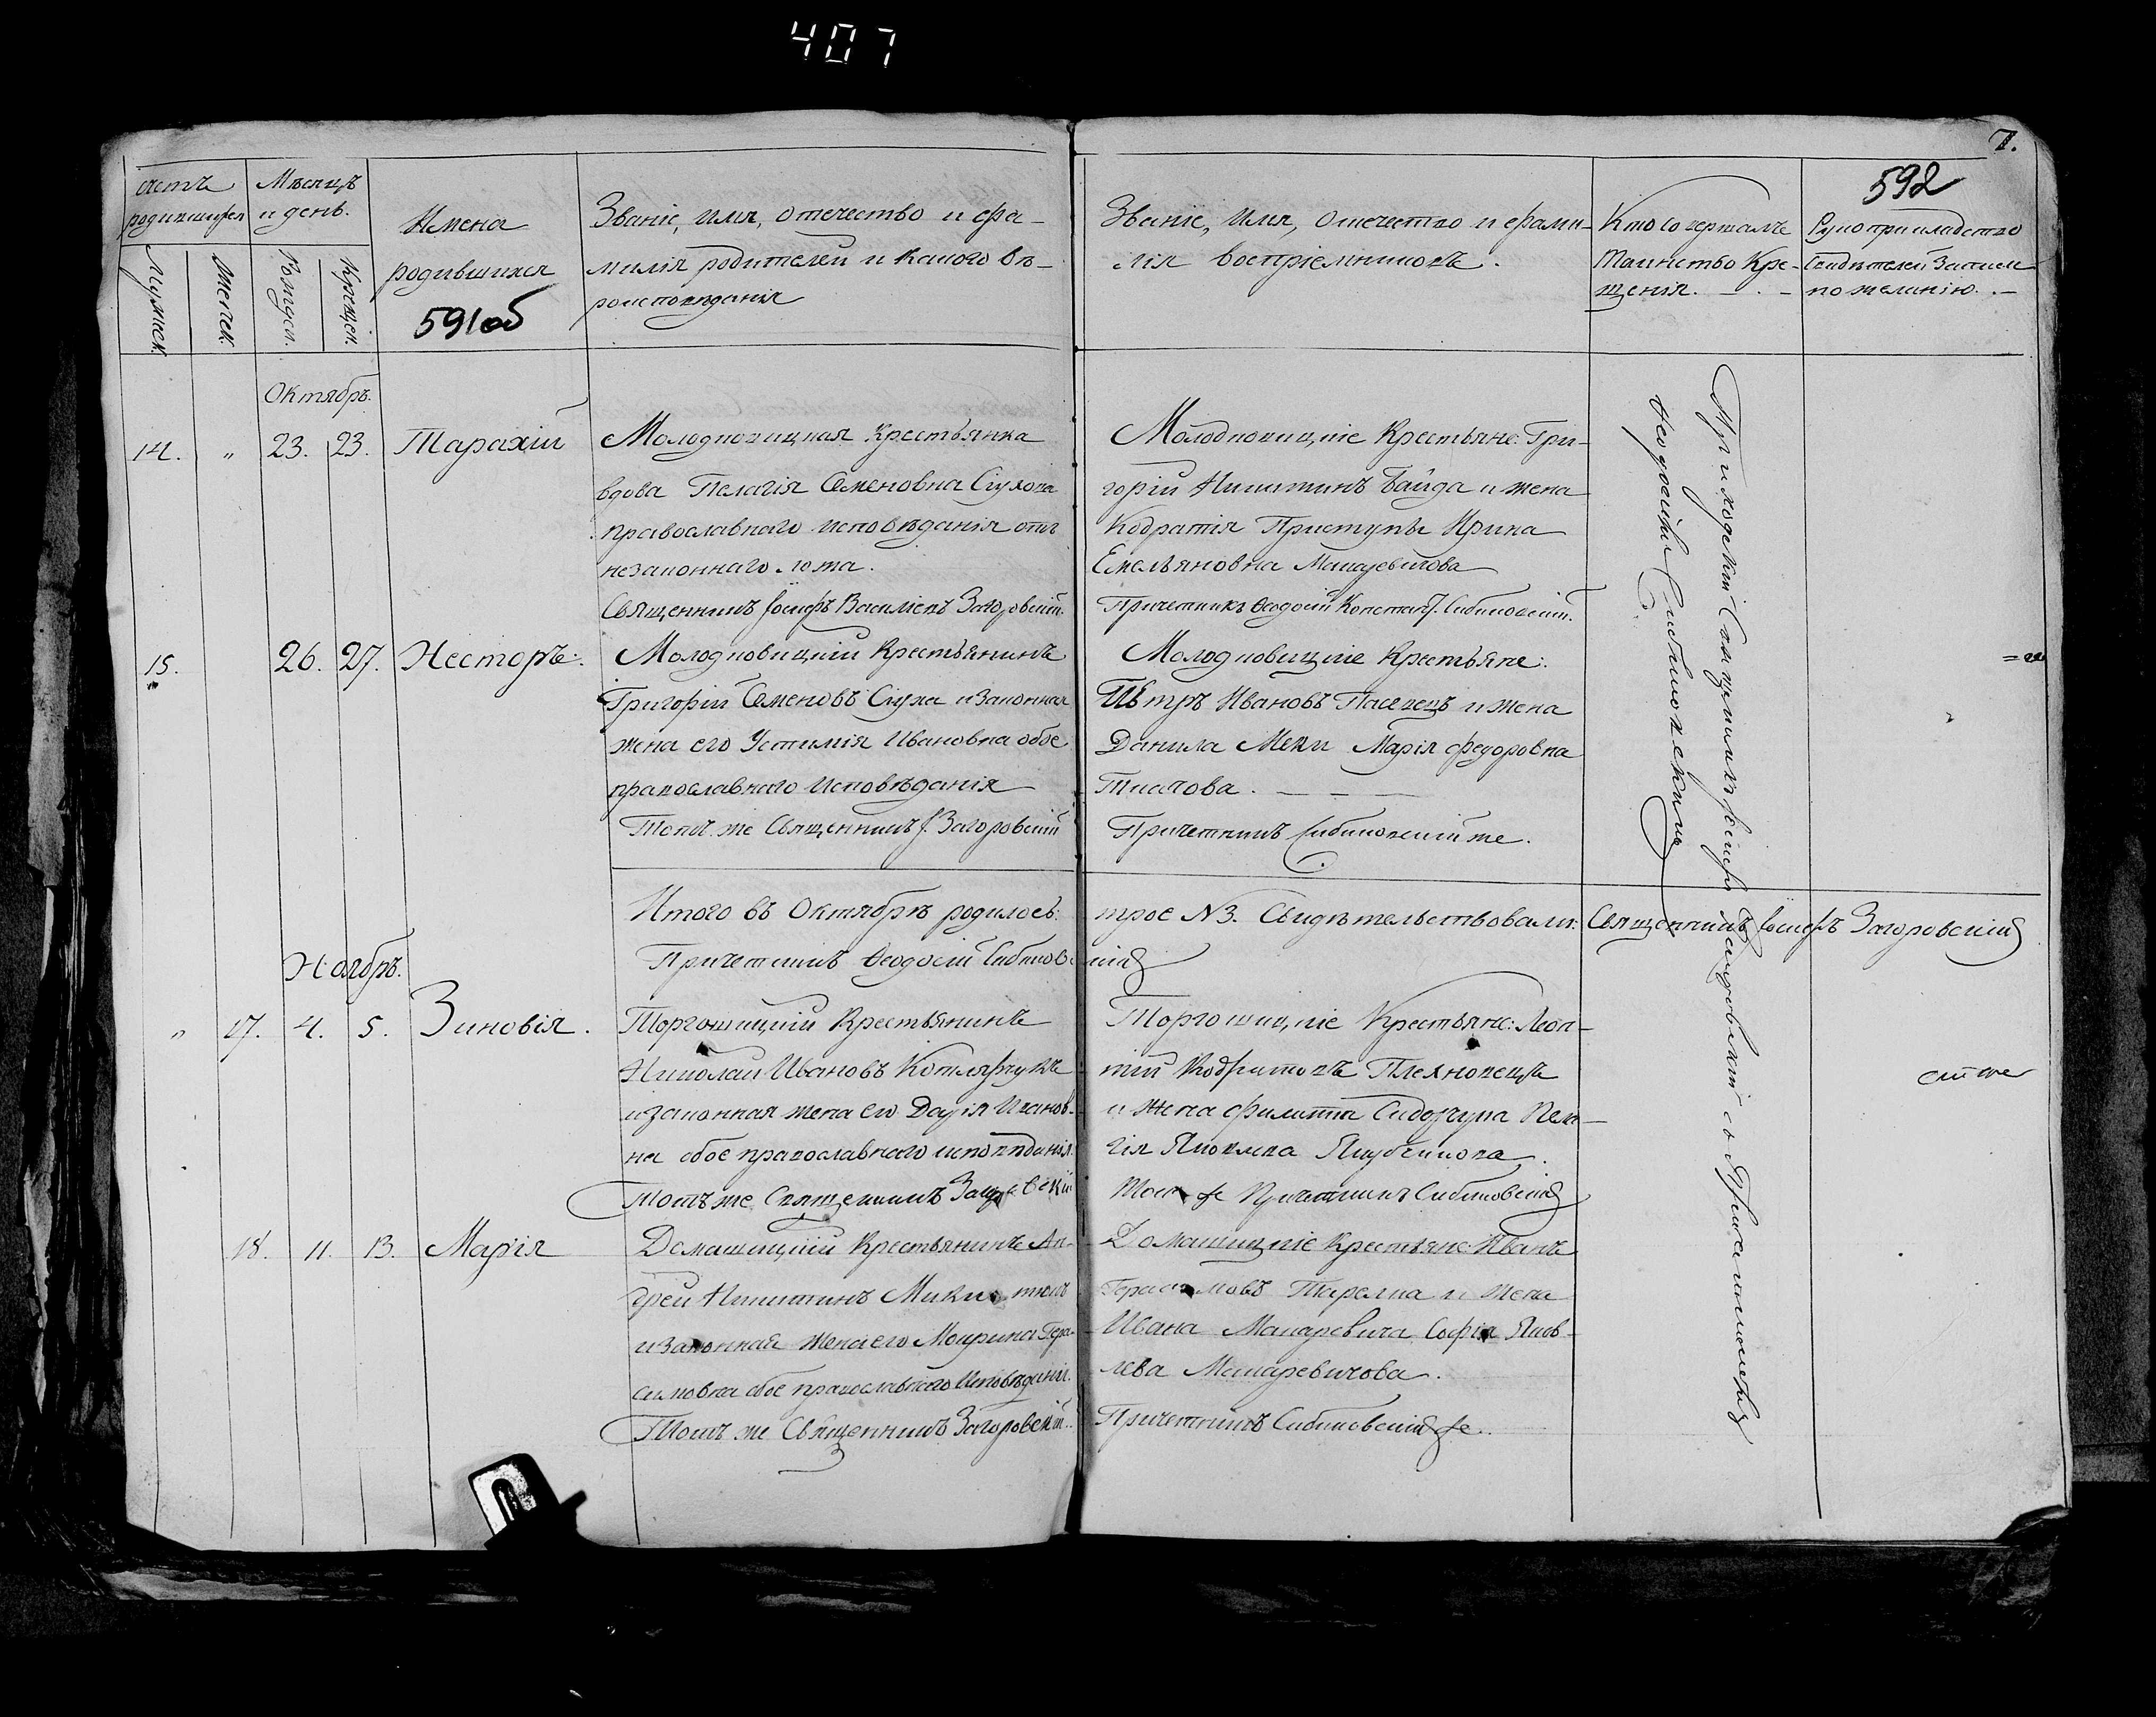 407
7.
592
счетъ
родившихся
Мѣсяцъ
и день.
Мужеск.
Женск.
Рожден.
Крещен.
Имена
родившихся
591об
Званіе, имя, отечество и фа-
милія родителей и какого вѣ-
роисповѣданія
Званіе, имя, отечество и фами-
лія воспріемниковъ.
Кто совершалъ
Таинство Кре-
щенія.
Рукоприкладство
Свидѣтелей записи
по желанію.
Октябрь.
14. „ 23. 23. Тарахій
Молодновицкая Крестьянка
вдова Пелагія Семеновна
православнаго исповѣданія отъ
незаконнаго ложа.
Священникъ Іосифъ Василіевъ Загоровскій.
Молодновицкіе Крестьяне: Гри-
горій Никитинъ Байда и жена
Кодратія Приступы Ирина
Емельяновна Макаревичова
Причетникъ Ѳеодосій Констант. Сибиковскій.
15. 26. 27. Несторъ.
Молодновицкій Крестьянинъ
Григорій Семеновъ и законная
жена его Устимія Ивановна обое
православнаго исповѣданія
Тотъ же Священникъ І. Загоровскій
Молодновицкіе Крестьяне:
Петръ Ивановъ Пасевецъ и жена
Данила Меки Марія Федоровна
Ткачова.
Причетникъ Сибиковскій же.
Приходскій Священникъ Іосифъ Загоровскій съ Причетникомъ
Ѳеодосіемъ Сибиковскимъ
Итого въ Октябрѣ родилось:
трое №3. Свидѣтельствовали: Священникъ Іосифъ Загоровскій
Причетникъ Ѳеодосій Сибиковскій
Ноябрь.
„ 17. 4. 5. Зиновія.
Торгошицкій Крестьянинъ
Николай Ивановъ Котлярчукъ
и законная жена его Дарія Иванов-
на обое православнаго исповѣданія.
Тотъ же Священникъ Загоровскій
Торгошицкіе Крестьяне: Леон-
тій Кодратовъ Плехновецъ
и жена Филиппа Сидорчука Пела-
гія Яковлева
Тотъ же Причетникъ Сибиковскій
18. 11. 13. Марія
Домашицкій Крестьянинъ Ан-
дрей Никитинъ
и законная жена его Маврина Гера-
симовна обое православнаго исповѣданія.
Тотъ же Священникъ Загоровскій.
Домашицкіе Крестьяне: Иванъ
Герасимовъ Тарелка и жена
Ивана Макаревича Софія Яков-
лева Макаревичова.
Причетникъ Сибиковскій же.